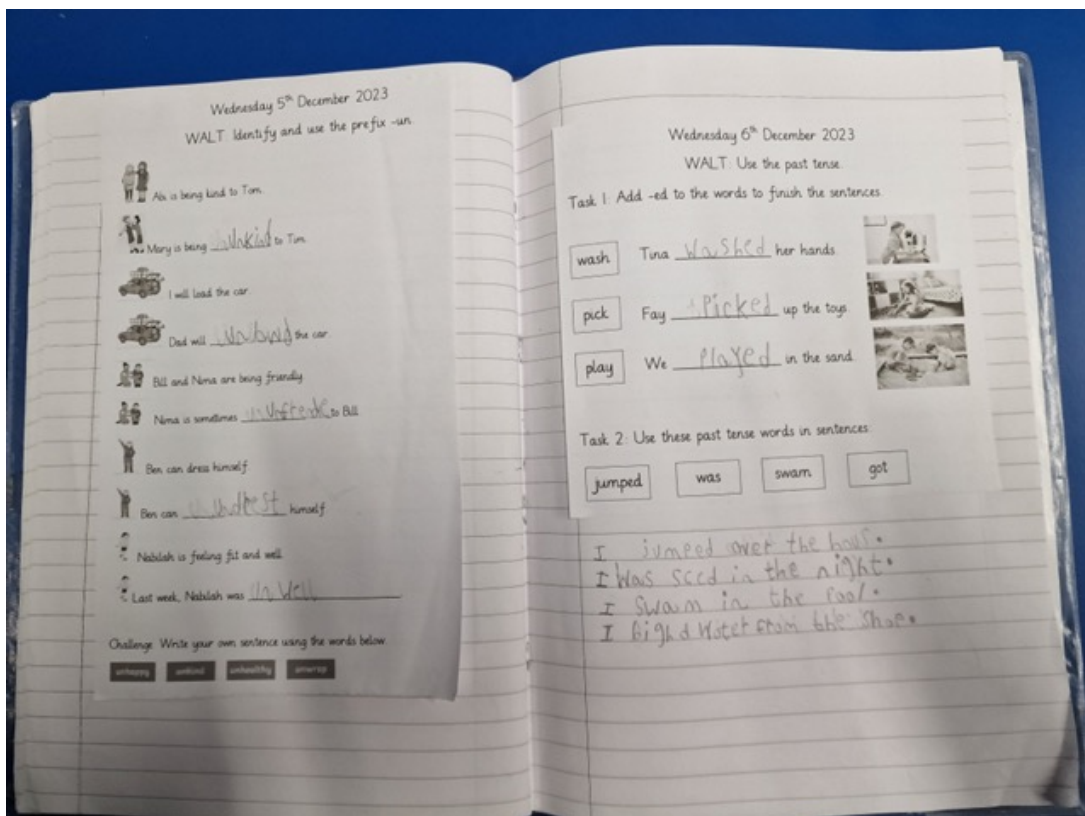 Wednesday 5th December 2023
WALT: Identify and use the prefix -un.
Alx is being kind to Tom.
Mary is being unkind to Tim.
I will load the car.
Dad will the car.
Bill and Nima are being friendly
Nima is sometimes to Bill
Ben can dress himself
Ben can himself
Nabilah is feeling fit and well
Last week, Nabilah was un well
Challenge: Write your own sentence using the words below
unhappy unkind unhealthy unwrap
Wednesday 6th December 2023
WALT: Use the past tense.
Task 1: Add -ed to the words to finish the sentences.
wash Tina washed her hands.
pick Fay Picked up the toys
play We Played in the sand
Task 2: Use these past tense words in sentences:
jumped was swam got
I jumeed over the hous.
I Was sced in the night.
I Swam in the Pool.
I Water from the Shop.